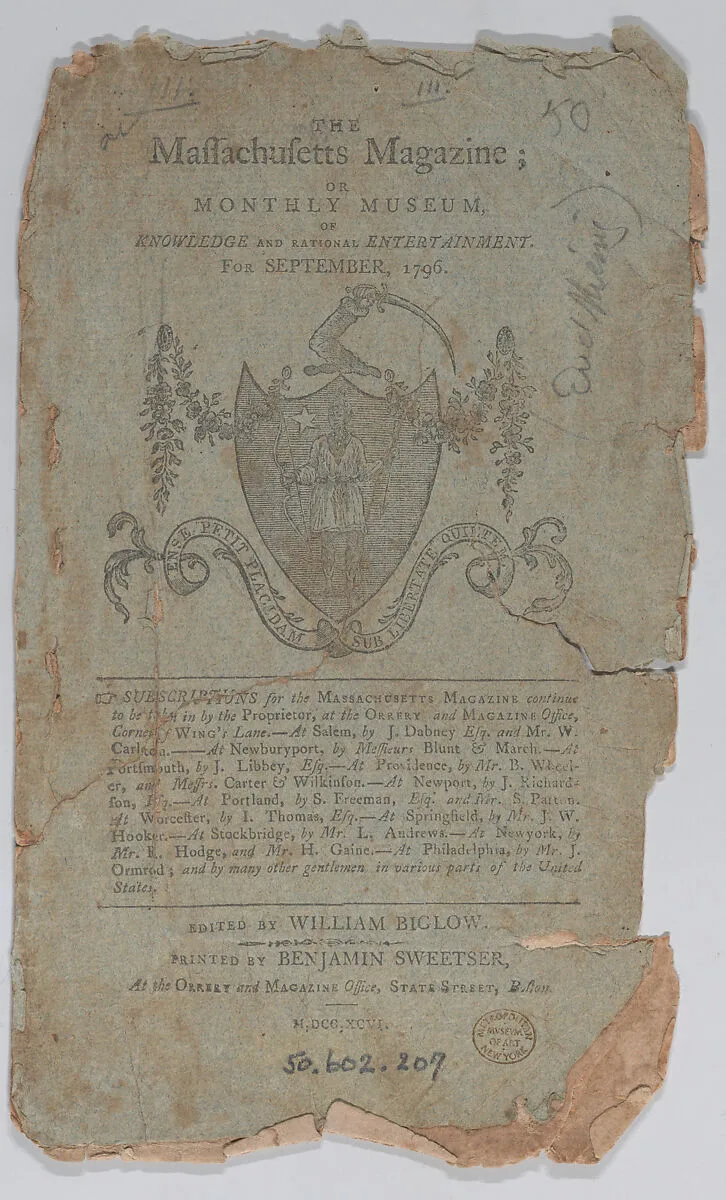 III.
III.
50
THE
Maſſachuſetts Magazine;
OR
MONTHLY MUSEUM,
OF
KNOWLEDGE AND RATIONAL ENTERTAINMENT.
FOR SEPTEMBER, 1796.
ENSE PETIT PLACIDAM
SUB LIBERTATE QUIETEM
☞ SUBSCRIPTIONS for the MASSACHUSETTS MAGAZINE continue
to be taken in by the Proprietor, at the ORRERY and MAGAZINE Office,
Corner of WING's Lane.—At Salem, by J. Dabney Eſq. and Mr. W.
Carlton.——At Newburyport, by Meſſieurs Blunt & March.—At
Portſmouth, by J. Libbey, Eſq.—At Providence, by Mr. B. Wheel-
er, and Meſſrs. Carter & Wilkinſon.—At Newport, by J. Richard-
ſon, Eſq.—At Portland, by S. Freeman, Eſq. and Mr. S. Patten.
At Worceſter, by I. Thomas, Eſq.—At Springfield, by Mr. J. W.
Hooker.—At Stockbridge, by Mr. L. Andrews.—At Newyork, by
Mr. R. Hodge, and Mr. H. Gaine.—At Philadelphia, by Mr. J.
Ormrod; and by many other gentlemen in various parts of the United
States.
EDITED BY WILLIAM BIGLOW.
PRINTED BY BENJAMIN SWEETSER,
At the ORRERY and MAGAZINE Office, STATE STREET, Boſton.
M,DCC,XCVI.
METROPOLITAN
MUSEUM
OF ART
NEW YORK
50.602.207